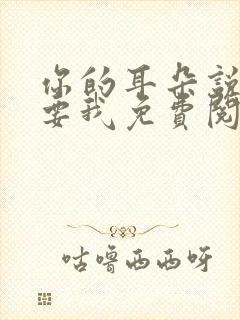 你的耳朵說
要我免費閱
咕嚕西西呀